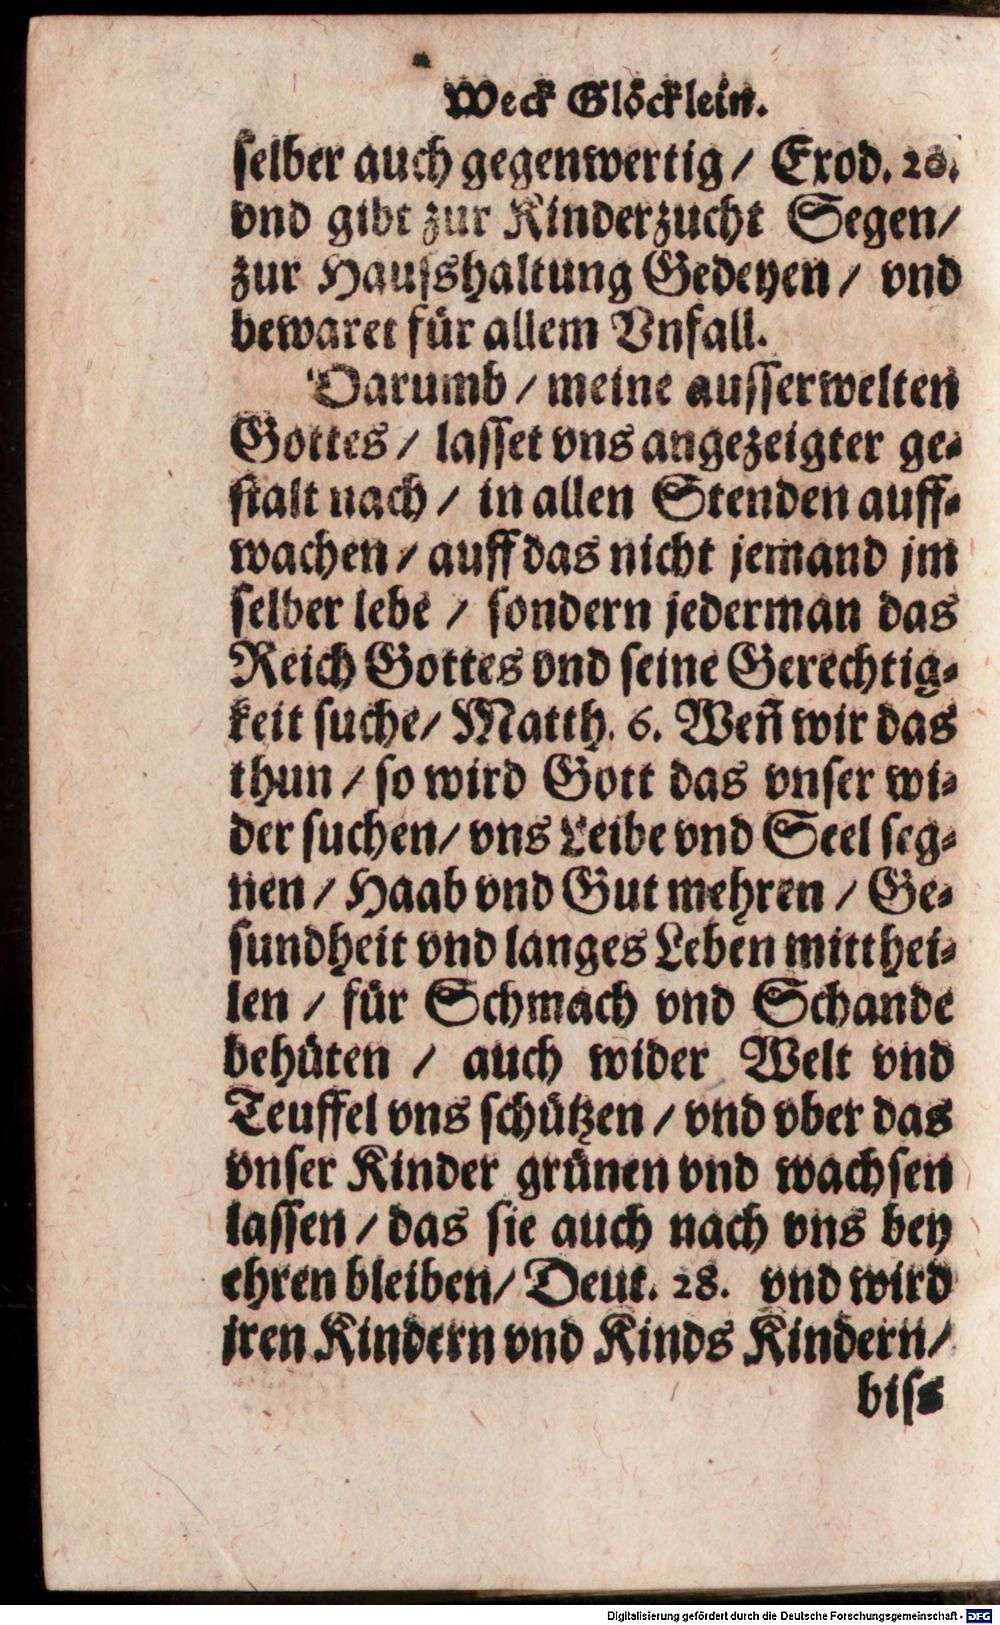 Weck Glöcklein.
selber auch gegenwertig / Exod. 20.
vnd gibt zur Kinderzucht Segen /
zur Hausshaltung Gedeyen / vnd
bewaret für allem Vnfall.
Darumb / meine ausserwelten
Gottes / lasset vns angezeigter ge⸗
stalt nach / in allen Stenden auff⸗
wachen / auff das nicht jemand jm
selber lebe / sondern jederman das
Reich Gottes vnd seine Gerechtig⸗
keit suche / Matth. 6. Weñ wir das
thun / so wird Gott das vnser wi⸗
der suchen / vns Leibe vnd Seel seg⸗
nen / Haab vnd Gut mehren / Ge⸗
sundheit vnd langes Leben mitthei⸗
len / für Schmach vnd Schande
behüten / auch wider Welt vnd
Teuffel vns schützen / vnd vber das
vnser Kinder grünen vnd wachsen
lassen / das sie auch nach vns bey
ehren bleiben / Deut. 28. vnd wird
jren Kindern vnd Kinds Kindern /
biss
Digitalisierung gefördert durch die Deutsche Forschungsgemeinschaft - DFG